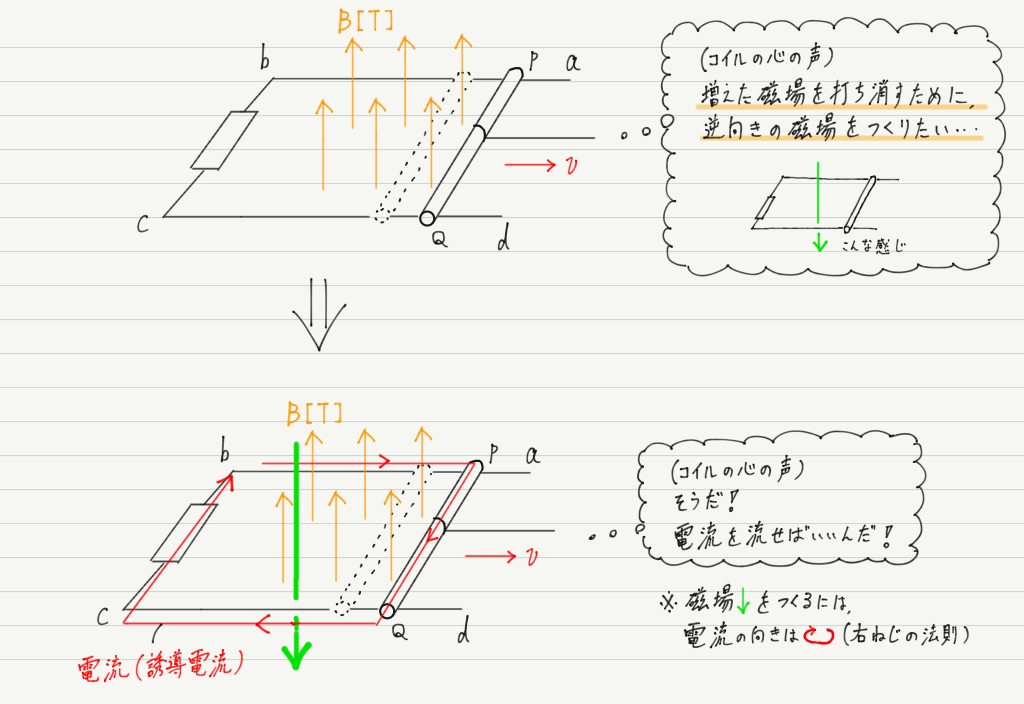 B[T]
b
P
a
v
C
Q
d
(コイルの心の声)
増えた磁場を打ち消すために,
逆向きの磁場をつくりたい…
こんな感じ
B[T]
b
P
a
v
C
Q
d
電流(誘導電流)
(コイルの心の声)
そうだ!
電流を流せばいいんだ!
※磁場↓をつくるには,
電流の向きは(右ねじの法則)